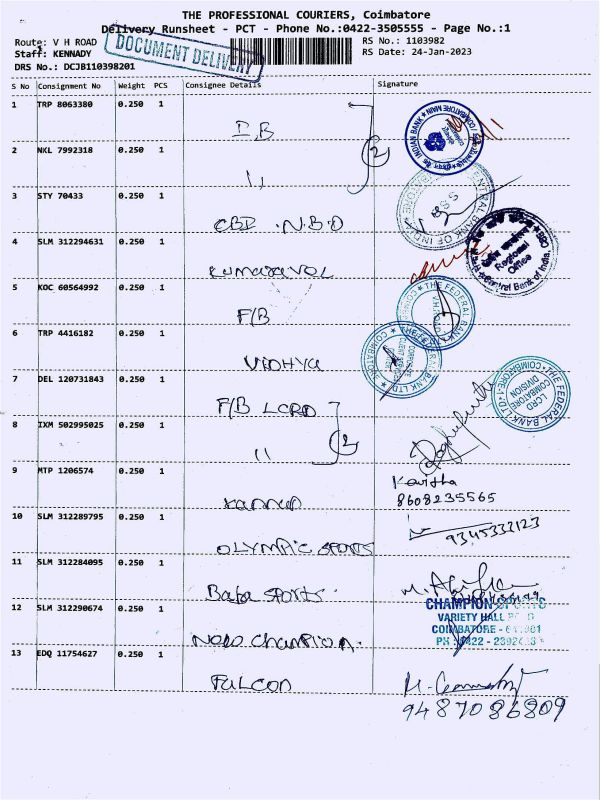 THE PROFESSIONAL COURIERS, Coimbatore
Delivery Runsheet - PCT - Phone No.:0422-3505555 - Page No.:1
Route: V H ROAD
RS No.: 1103982
Staff: KENNADY
RS Date: 24-Jan-2023
DOCUMENT DELIVERY
DRS No.: DCJB110398201
S No Consignment No Weight PCS Consignee Details Signature
1 TRP 8063380 0.250 1 I B
INDIAN BANK
2 NKL 7992318 0.250 1 ,,
2
3 STY 70433 0.250 1 CBI .N.B.O
CENTRAL BANK OF INDIA
4 SLM 312294631 0.250 1 Kumaravel
Regional
Office
Central Bank of India
5 KOC 60564992 0.250 1 F/B
THE FEDERAL BANK
6 TRP 4416182 0.250 1 Vidhya
COIMBATORE
7 DEL 120731843 0.250 1 F/B LCRD
THE FEDERAL BANK LTD
LCRD
COIMBATORE
DIVISION
8 IXM 502995025 0.250 1 ,,
2
9 MTP 1206574 0.250 1 Kannan
Kavitha
8608235565
10 SLM 312289795 0.250 1 OLYMPIC SPORTS
9345332123
11 SLM 312284095 0.250 1 Bata SPORTS
12 SLM 312290674 0.250 1 New Champion.
CHAMPION SPORTS
VARIETY HALL
COIMBATORE
13 EDQ 11754627 0.250 1 FALCON
9487086809